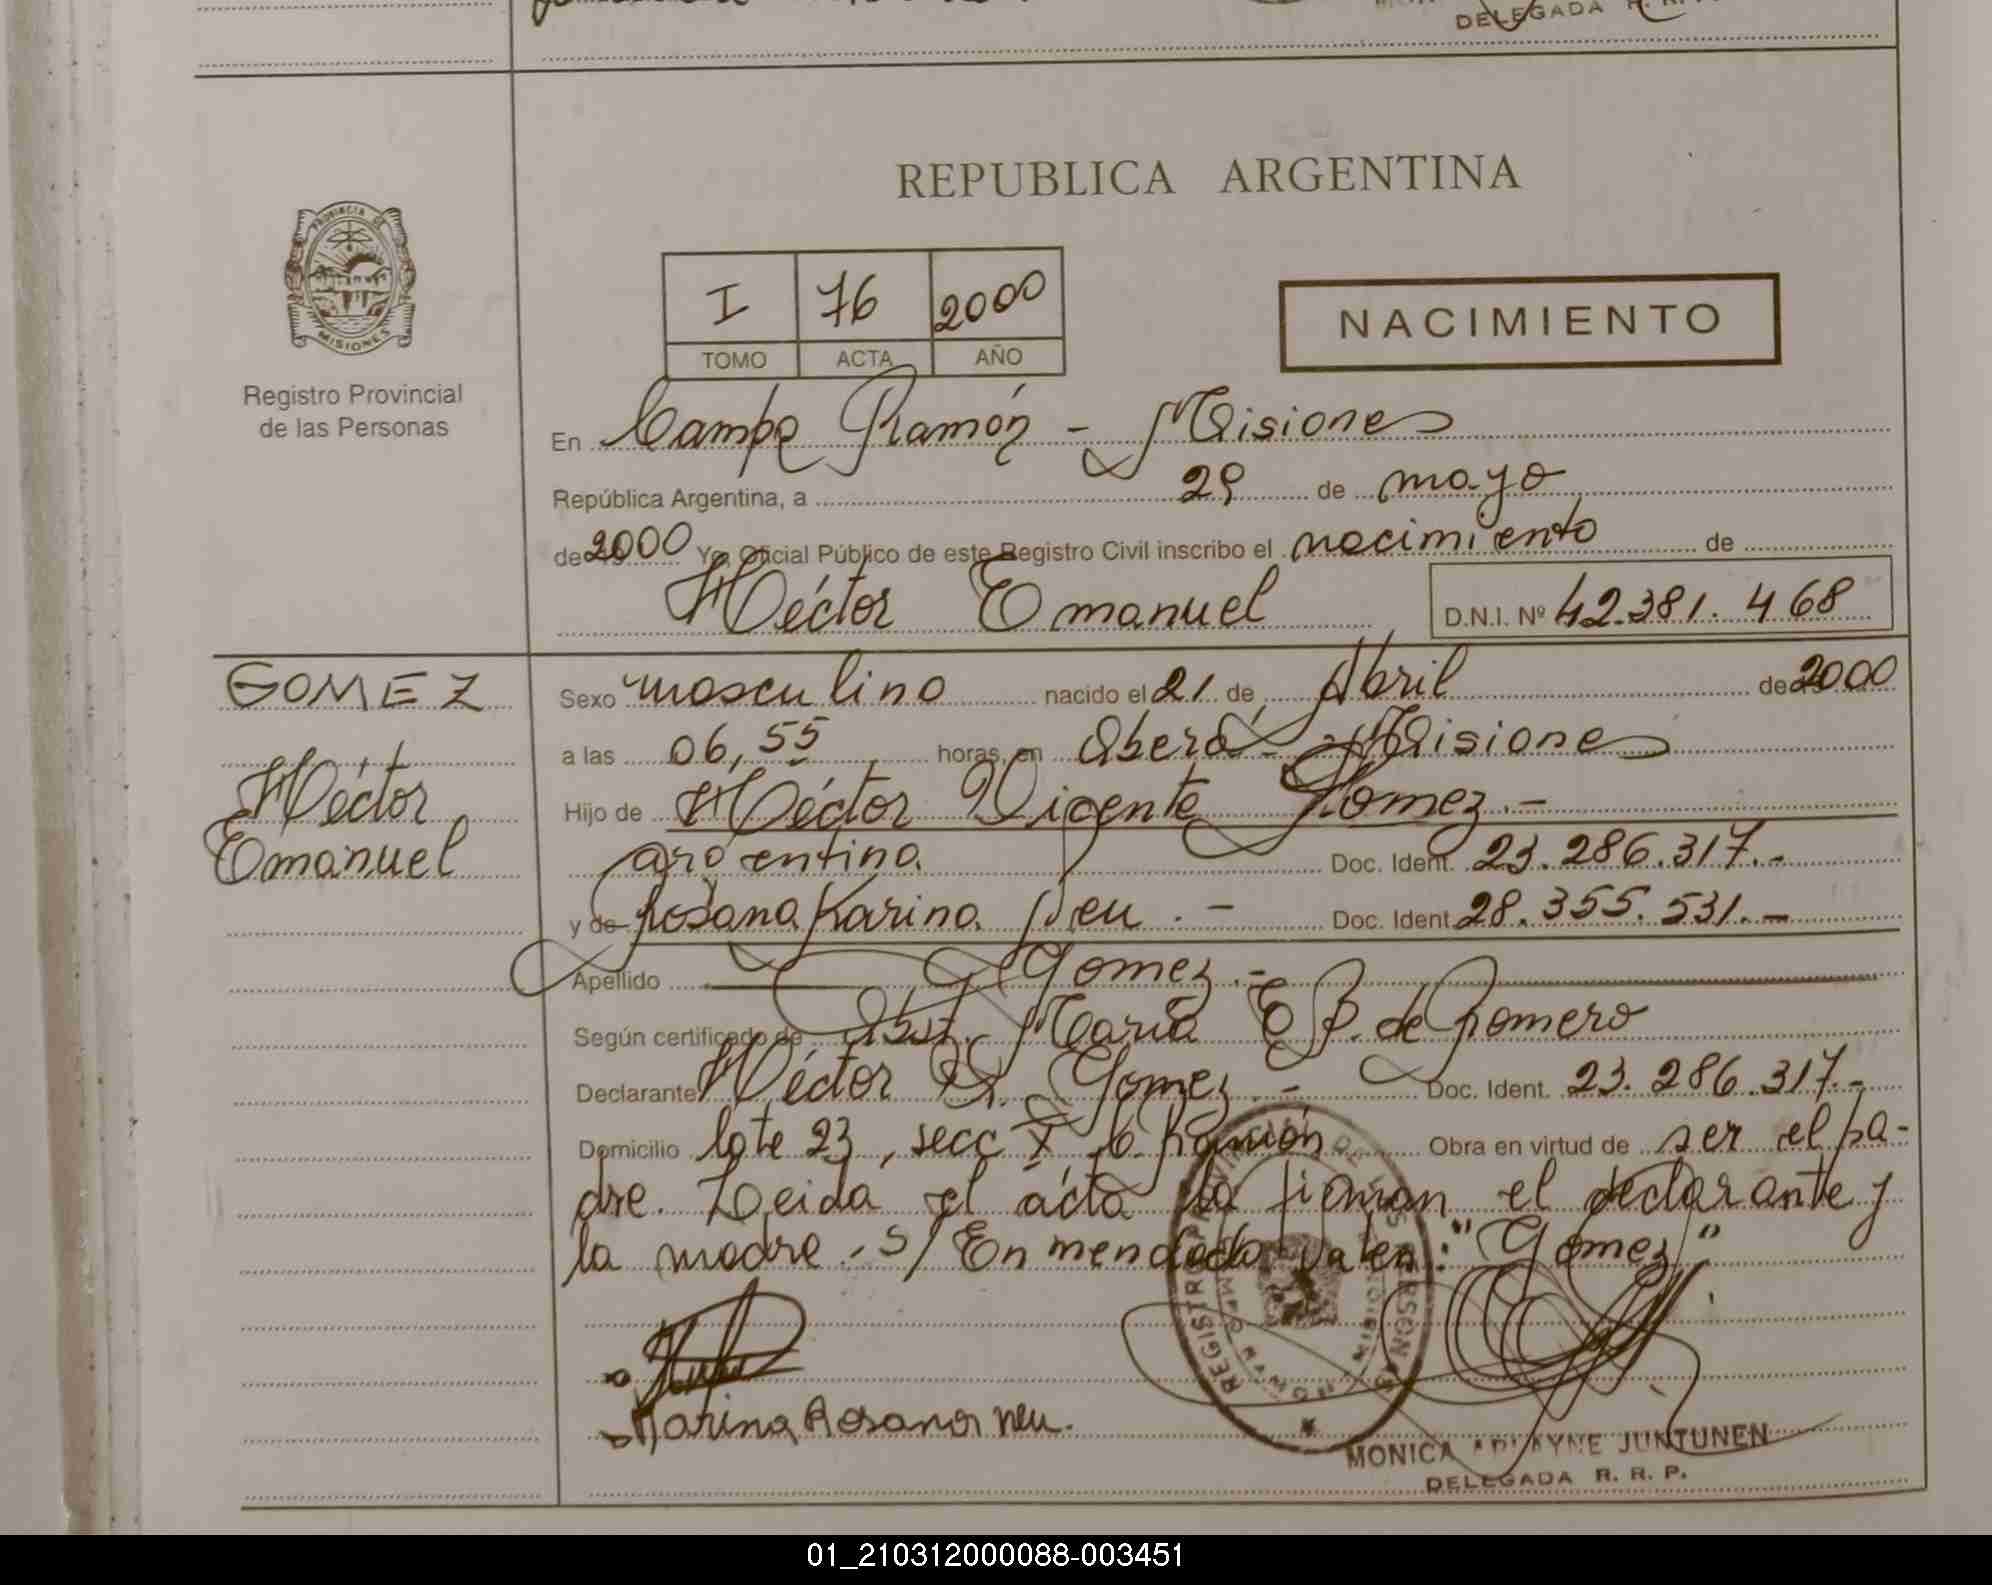 DELEGADA R.
REPUBLICA ARGENTINA
PROVINCIA DE
MISIONES
Registro Provincial
de las Personas
I 76 2000
TOMO ACTA AÑO
NACIMIENTO
En Campo Ramón - Misiones
República Argentina, a 29 de mayo
de 2000 Yo, Oficial Público de este Registro Civil inscribo el nacimiento de
Héctor Emanuel D.N.I. Nº 42.381.468
GOMEZ
Héctor
Emanuel
Sexo masculino nacido el 21 de Abril de 2000
a las 06,55 horas, en Oberá - Misiones
Hijo de Héctor Vicente Gomez.-
argentino. Doc. Ident. 23.286.317.-
y de Rosana Karina Neu.- Doc. Ident. 28.355.531.-
Apellido Gomez.-
Según certificado de Obst. María E. P. de Romero
Declarante Héctor V. Gomez.- Doc. Ident. 23.286.317.-
Domicilio lote 23, secc X C. Ramón Obra en virtud de ser el pa-
dre. Leida el acta la firman el declarante y
la madre.- S/ Enmendado valen: "Gomez"
Karina Rosana Neu.
REGISTRO PROVINCIAL DE LAS PERSONAS
CAMPO RAMON
MISIONES
MONICA ARLAYNE JUNTUNEN
DELEGADA R. R. P.
01_210312000088-003451